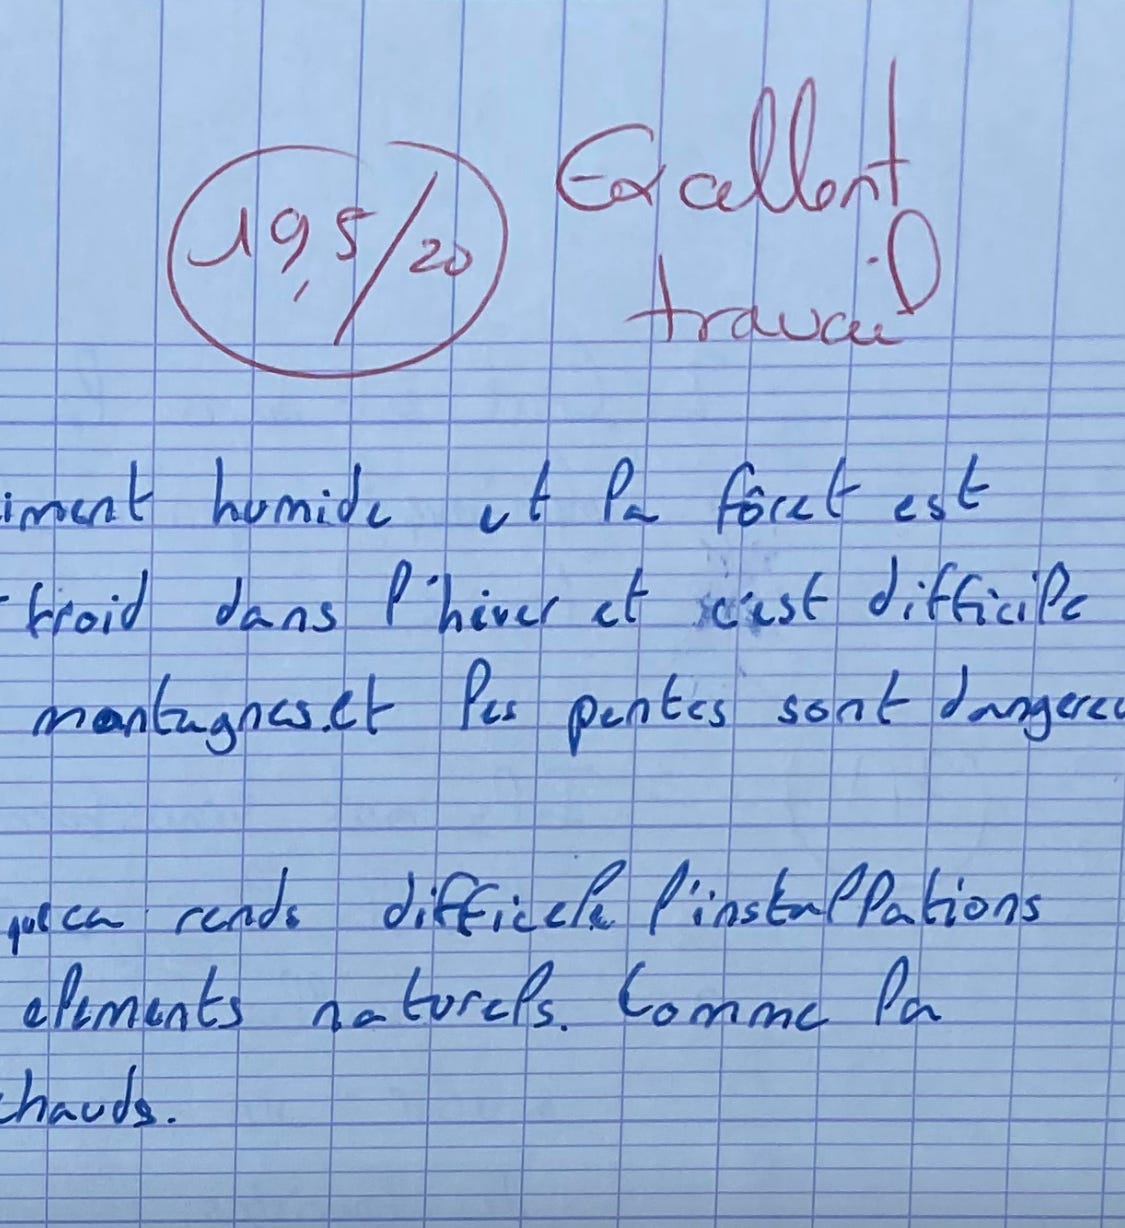 19,5/20
Excellent
travail
iment humide et la fôret est
froid dans l'hiver et c'est difficile
montagnes.et les pentes sont dangereu
que ca rends difficele l'installations
elements naturels. Comme la
chauds.